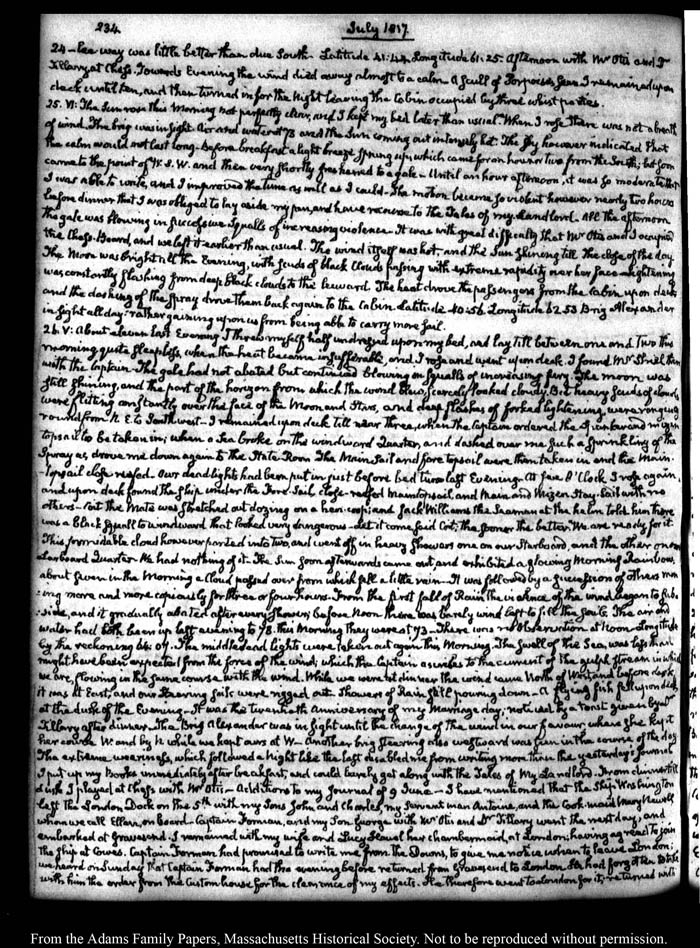 234 July 1817
24 - lee way was little better than due South. Latitude 41:44. Longitude 61:25. Afternoon with Mr Otis and Dr
Tillary at Chess. Towards Evening the wind died away almost to a calm. A scull of Porpoises seen. I remained upon
deck until ten, and then turned in for the Night leaving the Cabin occupied by three whist parties.
25. VI: The Sun rose this Morning not perfectly clear, and I kept my bed later than usual. When I rose there was not a breath
of wind. The brig was in sight. Air and water at 73 and the Sun coming out intensely hot. The Sky however indicated that
the calm would not last long. Before breakfast a light breeze sprung up, which came for an hour or two from the South; but soon
came to the point of W.S.W. and then very shortly freshened to a gale. Until an hour afternoon, it was so moderate that
I was able to write, and I improved the time as well as I could. The motion became so violent however nearly two hours
before dinner that I was obliged to lay aside my pen, and have recourse to the Tales of my Landlord. All the afternoon
the gale was blowing in successive Squalls of increasing violence. It was with great difficulty that Mr Otis and I occupied
the Chess-Board, and we left it earlier than usual. The wind itself was hot, and the Sun shining till the close of the day.
The Moon was bright all the Evening, with scuds of black Clouds passing with extreme rapidity over her face - lightening
was constantly flashing from deep black clouds to the leeward. The heat drove the passengers from the Cabin upon deck
and the dashing of the Spray drove them back again to the Cabin. Latitude 40:56. Longitude 62:53 Brig Alexander
in sight all day: rather gaining upon us from being able to carry more sail.
26. V: About eleven last Evening I threw myself half undressed upon my bed, and lay till between one and two this
morning quite sleepless, when the heat became insufferable, and I rose and went upon deck. I found Mr then
with the Captain. The gale had not abated but continued blowing in Squalls of increasing fury. The moon was
still shining, and the part of the horizon from which the wind blew, scarcely looked cloudy. But heavy scuds of clouds
were flitting constantly over the face of the Moon and Stars, and deep flashes of forked lightening, were ranging
round from N.E. to Southwest - I remained upon deck till near three, when the Captain ordered the Spanker and mizen
topsail to be taken in; when a Sea broke on the windward Quarter, and dashed over me such a sprinkling of the
Spray as drove me down again to the State Room. The Main Sail and fore topsail were then taken in and the Main-
-topsail close reefed. Our dead lights had been put in just before bed time last Evening. At five O'Clock I rose again,
and upon deck found the Ship under the Fore-Sail, close-reefed Main topsail, and Main and Mizen Stay-sail with no
others - but the Mate was stretched out dozing on a hen-coop; and Jack Williams the Seaman at the helm told him there
was a black Squall to windward that looked very dangerous - Let it come said Cot; the sooner the better. We are ready for it.
This formidable cloud however parted into two, and went off in heavy Showers one on our Starboard, and the other on our
Larboard Quarter. We had nothing of it. The Sun soon afterwards came out, and exhibited a glowing Morning Rainbow,
about seven in the Morning a Cloud passed over from which fell a little rain. It was followed by a succession of others rain-
:ing more and more copiously for three or four hours. From the first fall of Rain the violence of the wind began to sub-
:side, and it gradually abated after every Shower; before Noon there was barely wind left to fill the Sails. The air and
water had both been up last evening to 78. this Morning they were at 73. There was no Observation at Noon. Longitude
by the reckoning 66:07. The middle dead lights were taken out again this Morning. The Swell of the Sea, was less than
might have been expected from the force of the wind; which the Captain ascribes to the current of the gulph stream in which
we are, flowing in the same course with the wind. While we were at dinner the wind came North of West, and before dark,
it was at East, and our Steering Sails were rigged out. Showers of Rain still pouring down - A flying fish fell upon deck,
at the dusk of the Evening. It was the twentieth Anniversary of my Marriage day; noticed by a toast given by Dr
Tillary after dinner. The Brig Alexander was in sight until the change of the wind in our favour, when she kept
her course W. and by N. while we kept ours at W. Another brig steering also westward was seen in the course of the day.
The extreme weariness, which followed a Night like the last disabled me from writing more than the yesterday's journal
I put up my Books immediately after breakfast, and could barely get along with the Tales of My Landlord. From dinner till
dusk I played at Chess with Mr Otis - Additions to my Journal of 9 June. - I have mentioned that the Ship Washington
left the London Dock on the 5th with my Sons John and Charles, my Servant man Antoine, and the Cook-maid Mary Newell
whom we call Ellen, on board. Captain Forman, and my Son George with Mr Otis and Dr Tillary went the next day, and
embarked at Gravesend. I remained with my wife and Lucy her chambermaid, at London; having agreed to join
the Ship at Cowes. Captain Forman had promised to write me from the Downs, to give me notice when to leave London;
we heard on Sunday that Captain Forman had the evening before returned from Gravesend to London. He had forgotten to take
with him the order from the Custom house for the clearance of my effects. He therefore went to London for it; returned with
From the Adams Family Papers, Massachusetts Historical Society. Not to be reproduced without permission.